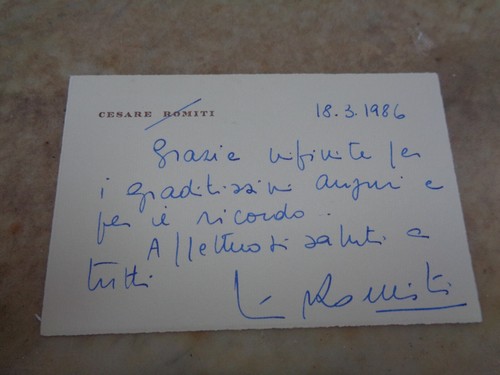 CESARE ROMITI 18.3.1986
Grazie infinite per
i graditissimi auguri e
per il ricordo.
Affettuosi saluti a
tutti
Romiti